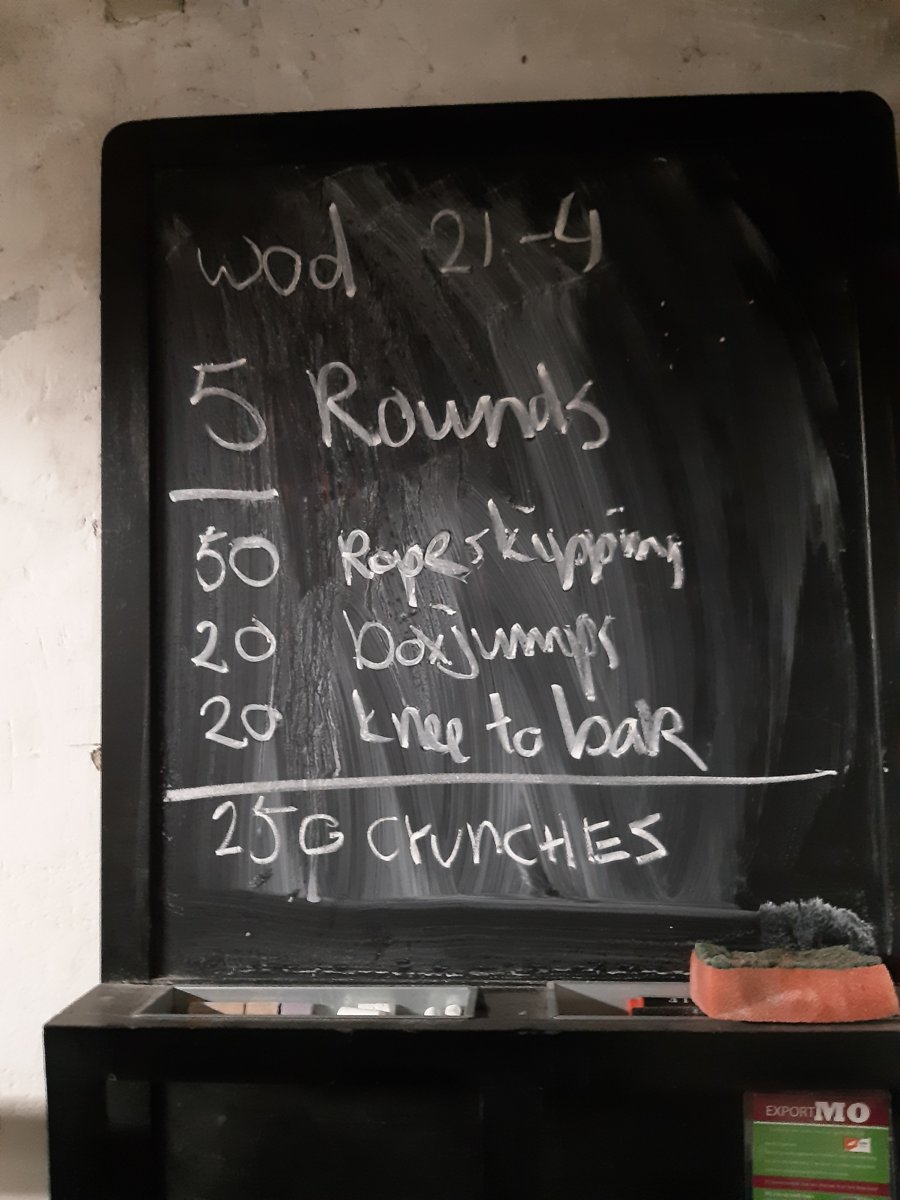 wod 21-4
5 Rounds
50 Ropeskipping
20 boxjumps
20 knee to bar
25 G CRUNCHES
EXPORTMO